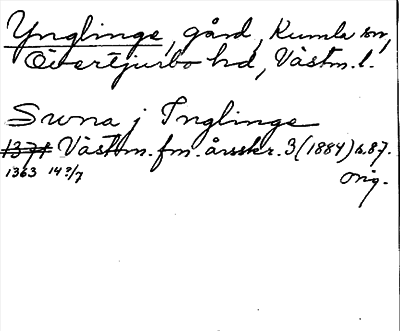 Ynglinge, gård, Kumla sn,
Övertjurbo hd, Västm. l.
Suna j Inglinge
1371 Västm. fm. årsskr. 3 (1884) s. 87.
1363 14?/7 orig.